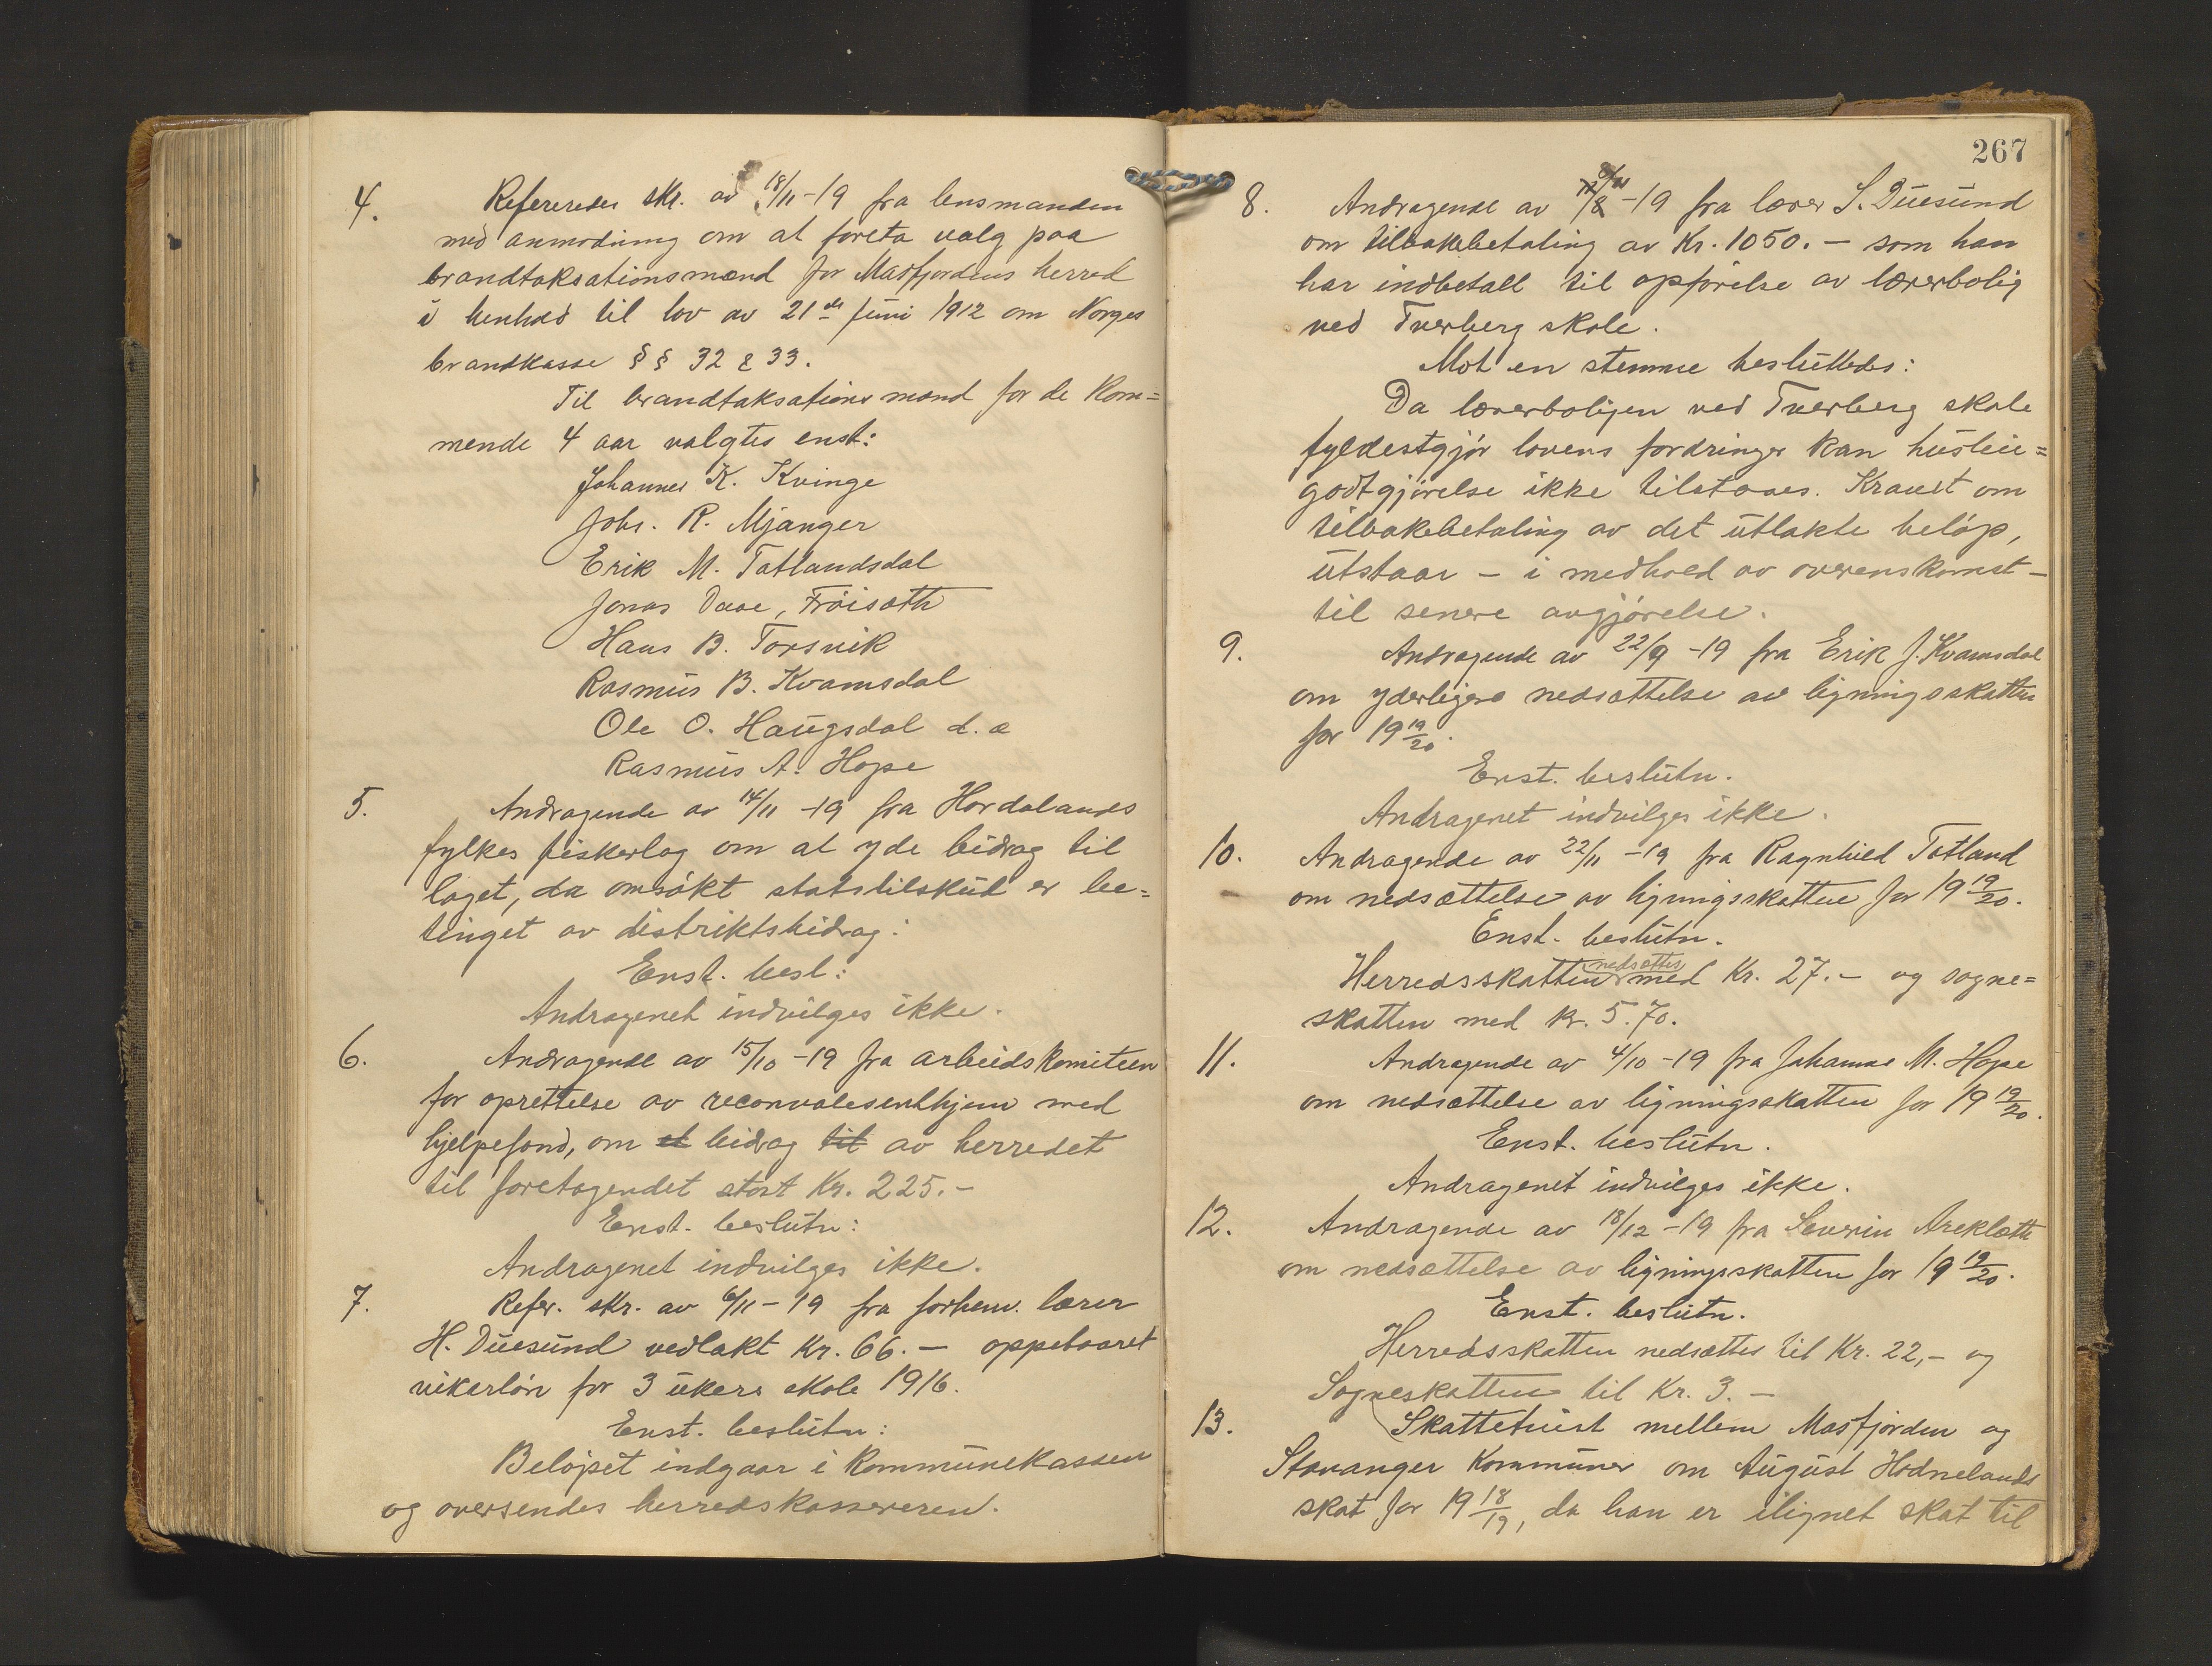 4. Refereredes skr. av 18/11-19 fra lensmanden
med anmodning om at foreta valg paa
brandtaksationsmænd for Masfjordens herred
i henhold til lov av 21de juni 1912 om Norges
brandkasse § § 32 & 33.
Til brandtaksationsmænd for de kom=
mende 4 aar valgtes enst:
Johannes K. Kvinge
Johs. R. Mjanger
Erik M. Totlandsdal
Jonas Daae, Frøisæth
Hans B. Torsvik
Rasmus B. Kvamsdal
Ole O. Haugsdal d.æ
Rasmus A. Hope
5. Andragende av 14/11 -19 fra Hordalands
fylkes fiskerlag om at yde bidrag til
laget, da omsøkt statstilskud er be=
tinget av distriktsbidrag:
Enst. besl:
Andragenet indvilges ikke.
6. Andragende av 15/10 -19 fra arbeidskomiteen
for oprettelse av reconvalesenthjem med
hjelpefond, om et bidrag til av herredet
til foretagendet stort Kr. 225.-
Enst. beslutn:
Andragenet indvilges ikke.
7. Refer. skr. av 6/11-19 fra forhenv. lærer
H. Duesund vedlakt Kr. 66.- oppebaaret
vikarløn for 3 ukers skole 1916.
Enst. beslutn:
Beløpet indgaar i kommunekassen
og oversendes herredskassereren.
267
8. Andragende av -19 fra lærer S. Duesund
om tilbakebetaling av Kr. 1050.- som han
har indbetalt til opførelse av lærerbolig
ved Tverberg skole.
Mot en stemme besluttedes:
Da lærerboligen ved Tverberg skole
fyldestgjør lovens fordringer kan husleie=
godtgjørelse ikke tilstaaes. Kravet om
tilbakebetaling av det utlakte beløp,
utstaar - i medhold av overenskomst -
til senere avgjørelse.
9. Andragende av 22/9 -19 fra Erik J. Kvamsdal
om yderligere nedsættelse av ligningsskatten
for 19 19/20.
Enst. beslutn.
Andragenet indvilges ikke.
10. Andragende av 22/11 -19 fra Ragnhild Totland
om nedsættelse av ligningsskatten for 19 19/20.
Enst. beslutn.
Herredsskatten nedsættes med Kr. 27.- og sogne=
skatten med kr. 5.70.
11. Andragende av 4/10 -19 fra Johannes M. Hope
om nedsættelse av ligningsskatten for 19 19/20.
Enst. beslutn.
Andragenet indvilges ikke.
12. Andragende av 18/12 -19 fra Severin Areklætt
om nedsættelse av ligningsskatten for 19 19/20.
Enst. beslutn.
Herredsskatten nedsættes til Kr. 22,- og
Sogneskatten til Kr. 3.-
13. Skattetvist mellem Masfjorden og
Stavanger kommuner om August Hodnelands
skat for 19 18/19, da han er ilignet skat til